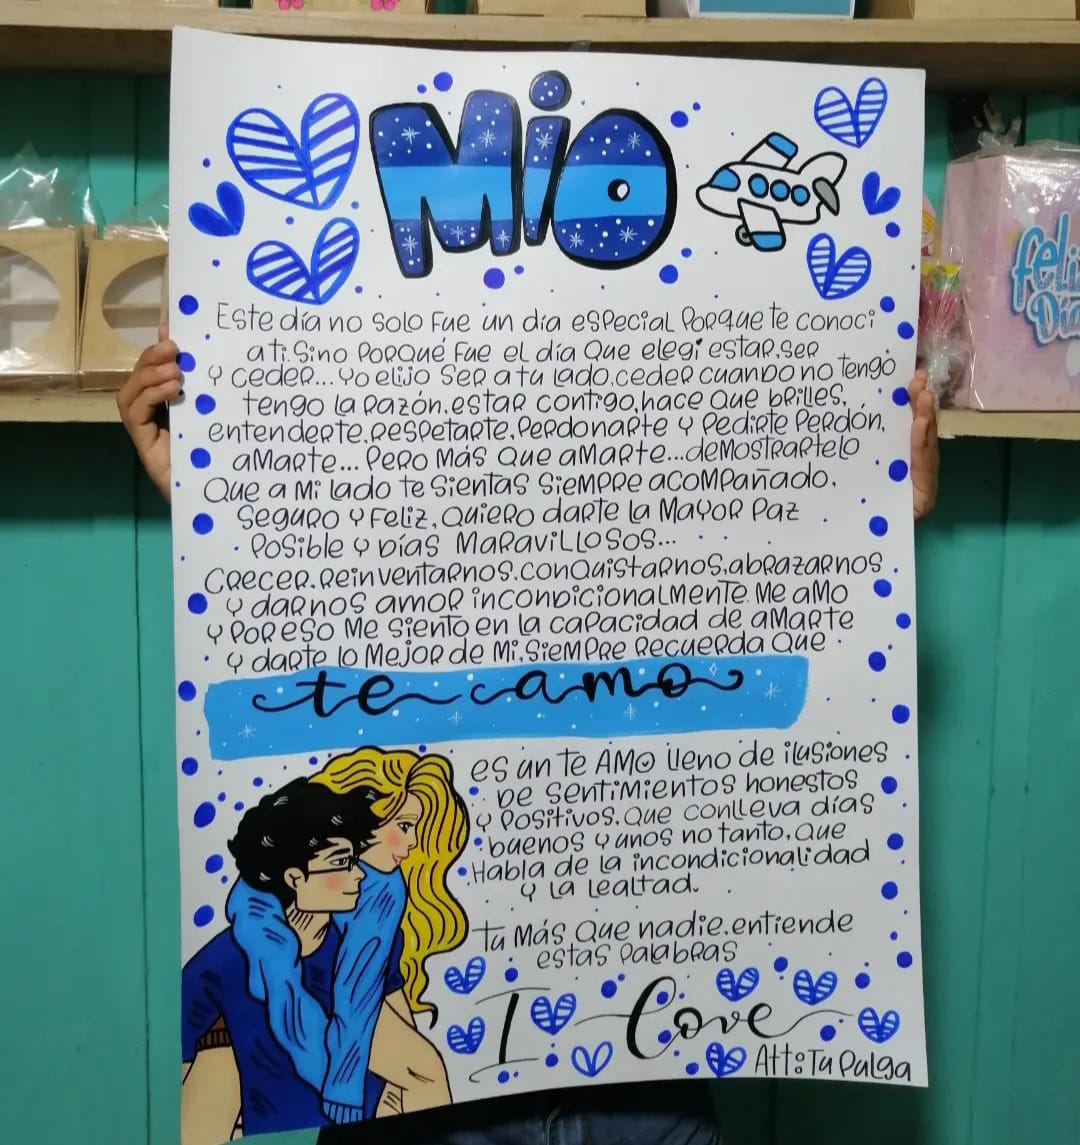 Mio
Este día no solo fue un día especial porque te conocí
a ti. Sino porqué fue el día que elegí estar, ser
y ceder... Yo elijo ser a tu lado, ceder cuando no tengo
tengo la razón, estar contigo, hace que brilles,
entenderte, respetarte, perdonarte y pedirte perdón,
amarte... pero más que amarte... demostrartelo
que a mi lado te sientas siempre acompañado,
seguro y feliz, quiero darte la mayor paz
posible y días maravillosos...
crecer, reinventarnos, conquistarnos, abrazarnos
y darnos amor incondicionalmente. Me amo
y por eso me siento en la capacidad de amarte
y darte lo mejor de mi, siempre recuerda que
te amo
es un te amo lleno de ilusiones
de sentimientos honestos
y positivos, que conlleva días
buenos y unos no tanto, que
Habla de la incondicionalidad
y la lealtad.
Tu más que nadie, entiende
estas palabras
I Love
Att: Tu pulga
feliz
Día